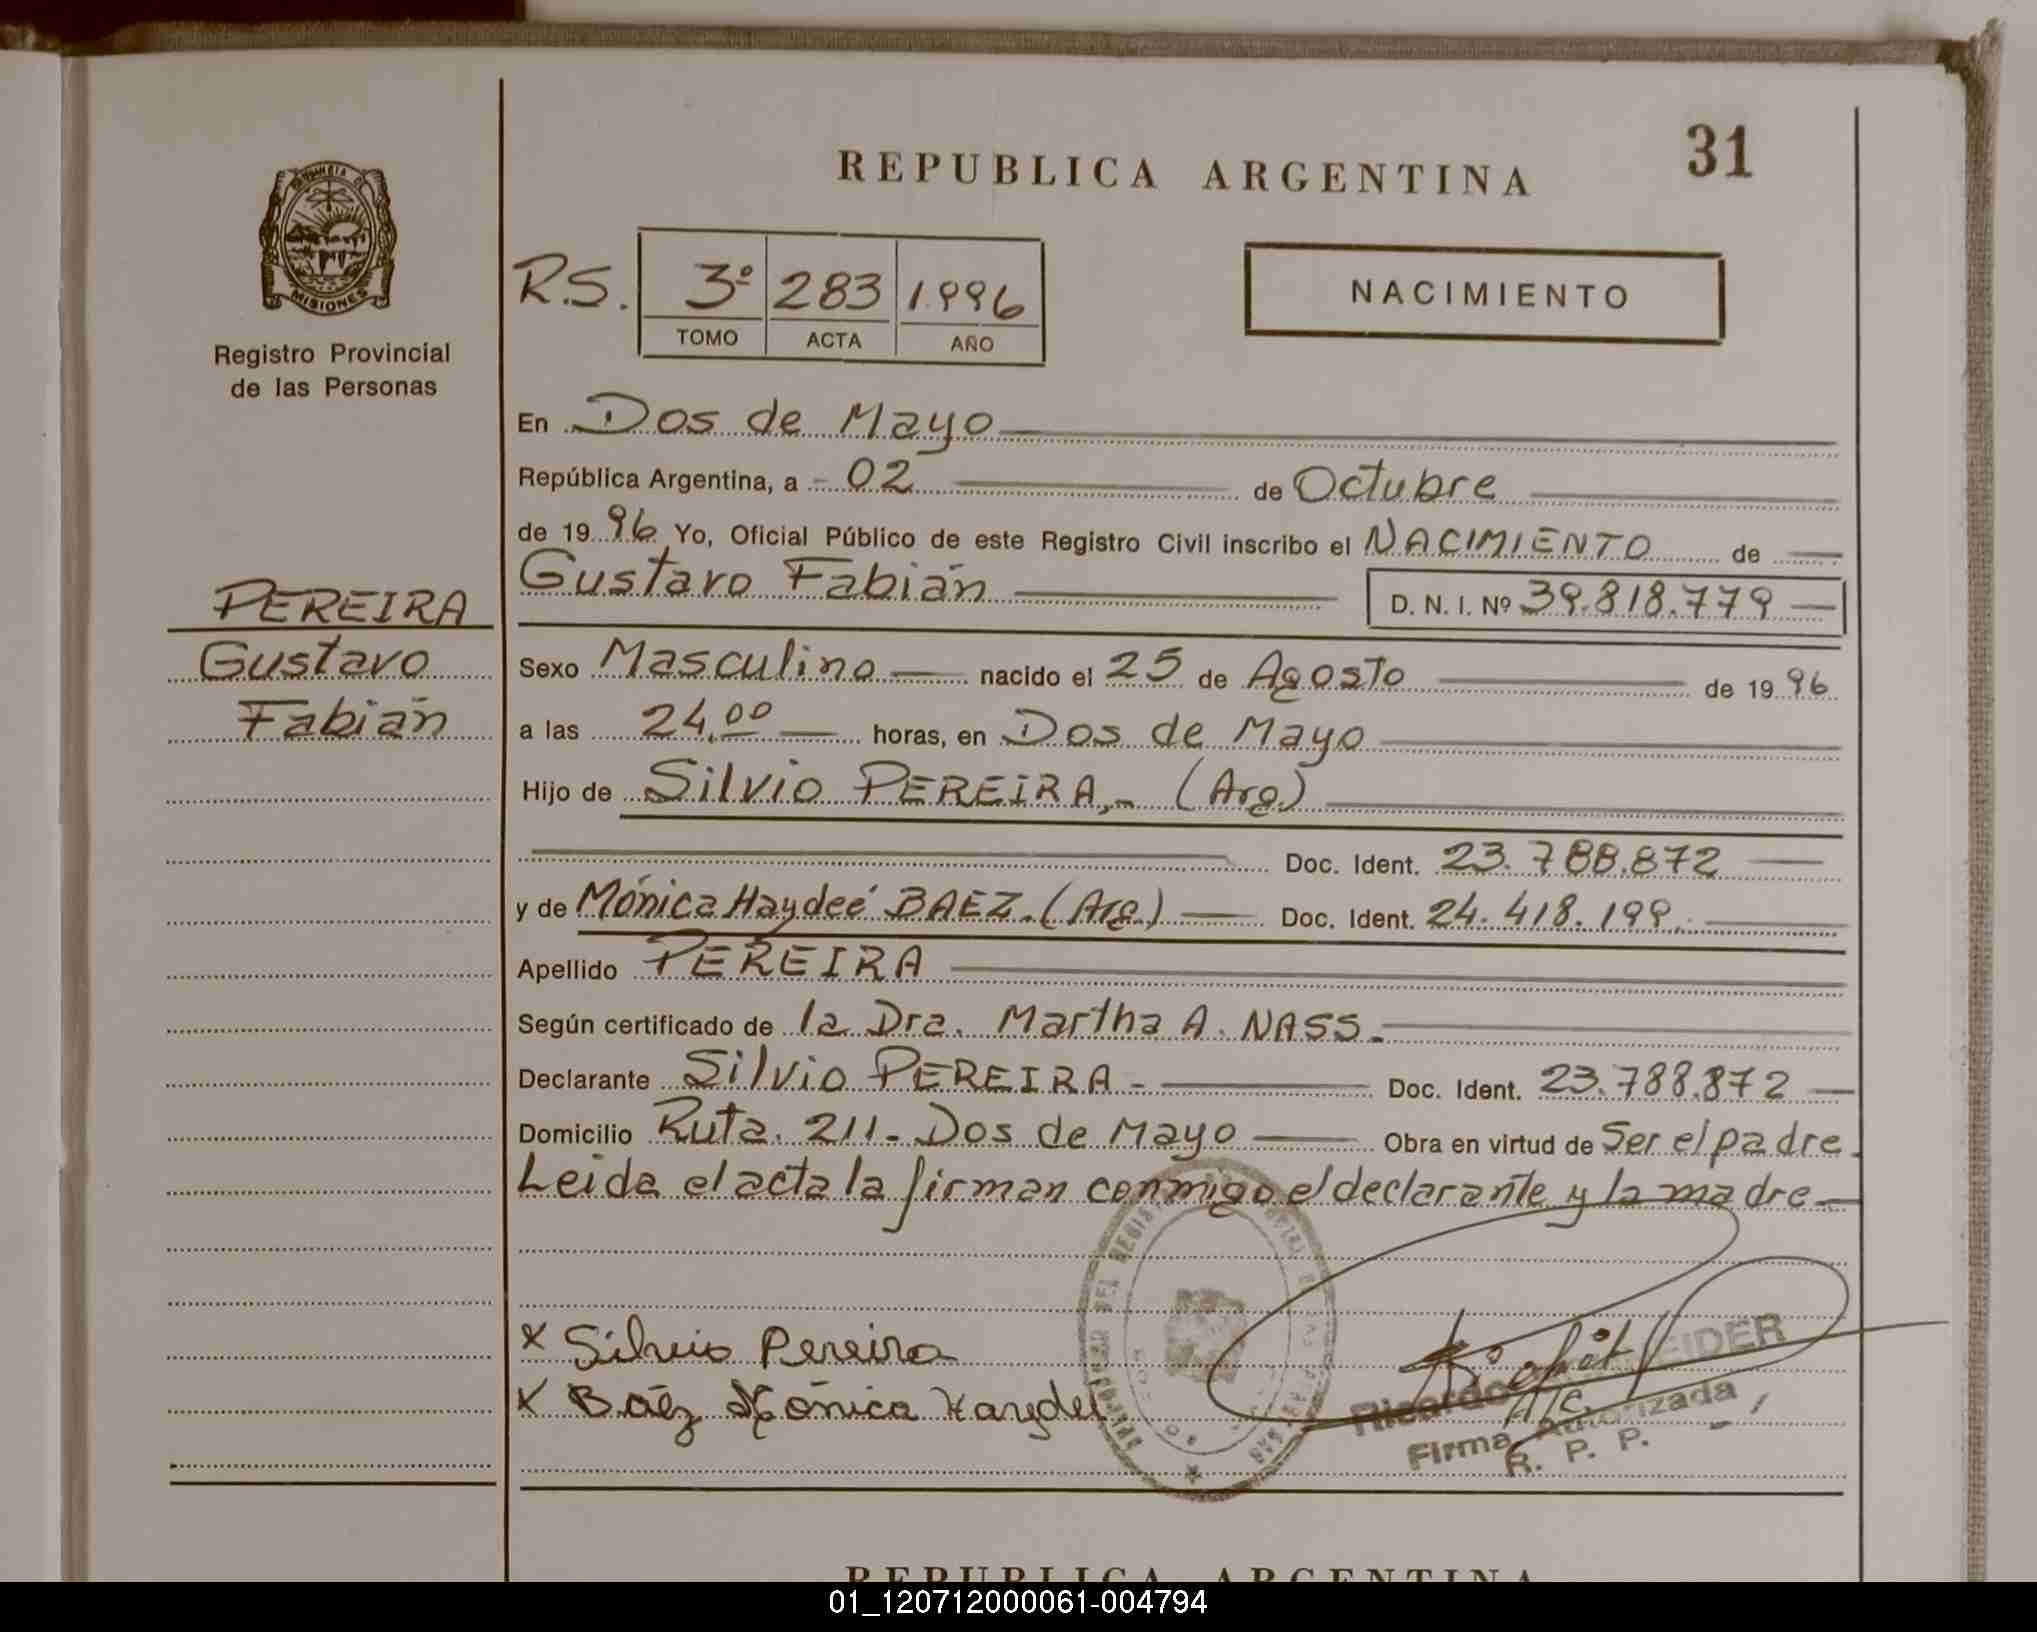 31
REPUBLICA ARGENTINA
MISIONES
Registro Provincial
de las Personas
R.S. 3º 283 1.996
TOMO ACTA AÑO
NACIMIENTO
En Dos de Mayo
República Argentina, a 02 de Octubre
de 1996 Yo, Oficial Público de este Registro Civil inscribo el NACIMIENTO de
Gustavo Fabián D. N. I. Nº 39.818.779
PEREIRA
Gustavo
Fabián
Sexo Masculino nacido el 25 de Agosto de 1996
a las 24.00 horas, en Dos de Mayo
Hijo de Silvio PEREIRA,- (Arg)
Doc. Ident. 23.788.872
y de Mónica Haydeé BAEZ. (Arg.) Doc. Ident. 24.418.199.
Apellido PEREIRA
Según certificado de la Dra. Martha A. NASS.-
Declarante Silvio PEREIRA - Doc. Ident. 23.788.872
Domicilio Ruta. 211- Dos de Mayo Obra en virtud de Ser el padre.
Leida el acta la firman conmigo el declarante y la madre.-
x Silvio Pereira
x Báez Mónica Haydeé
Ricardo
Firma Autorizada
R. P. P.
REPUBLICA ARGENTINA
01_120712000061-004794